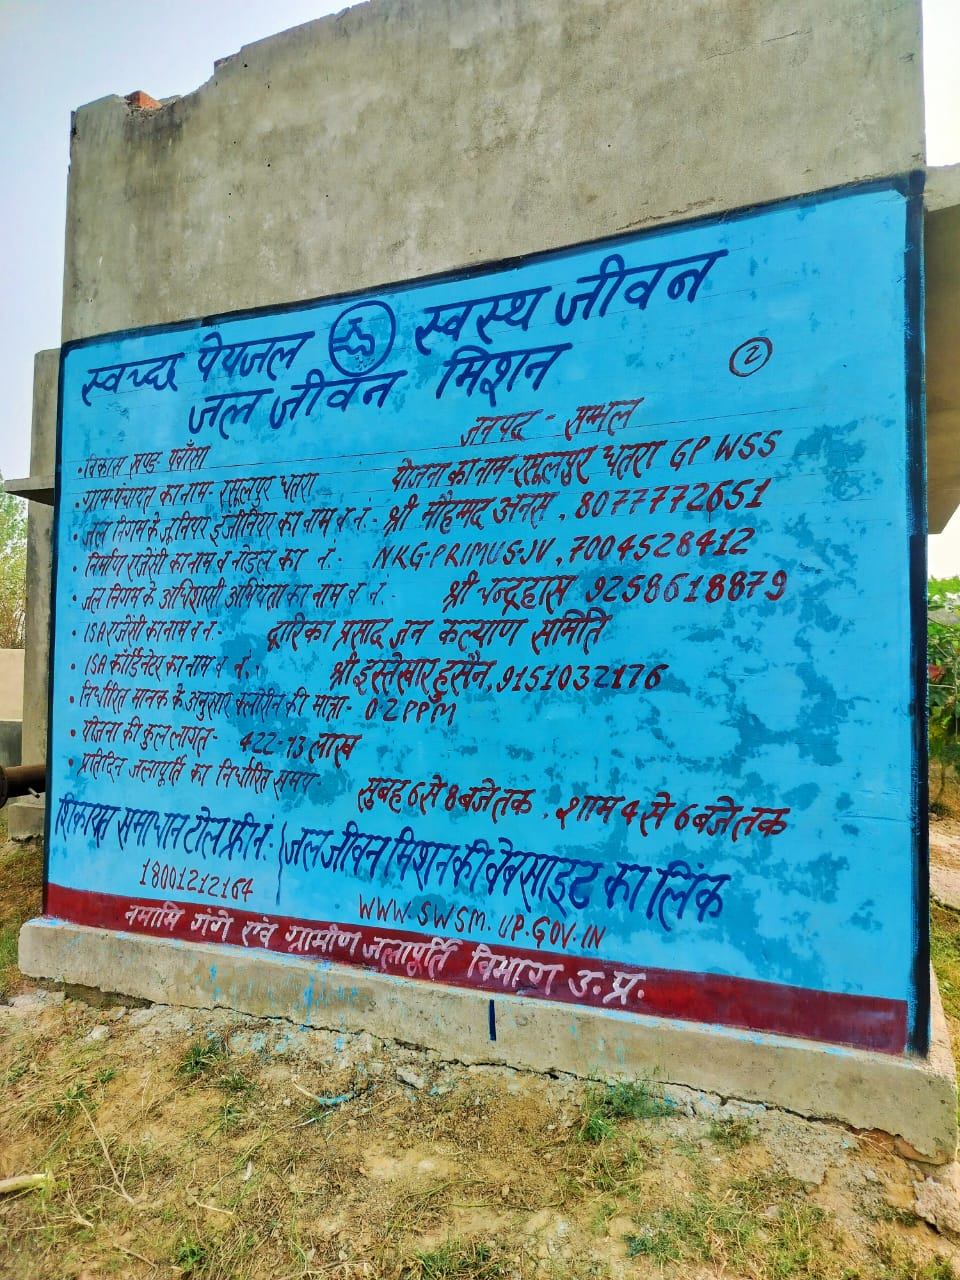 स्वच्छ पेयजल स्वस्थ जीवन
जल जीवन मिशन
2
जनपद - सम्भल
• विकास खण्ड पवाँसा
योजना का नाम- रसूलपुर धतरा GP WSS
• ग्राम पंचायत का नाम- रसूलपुर धतरा
• जल निगम के जूनियर इंजीनियर का नाम व नं.- श्री मौहम्मद अनस, 8077772651
• निर्माण एजेंसी का नाम व नोडल का नं.- NKG-PRIMUS-JV, 7004528412
• जल निगम के अधिशासी अभियंता का नाम व नं.- श्री चन्द्रहास 9258618879
• ISA एजेंसी का नाम व नं.- द्वारिका प्रसाद जन कल्याण समिति
• ISA कॉर्डिनेटर का नाम व नं.- श्री इस्तेखार हुसैन, 9151032176
• निर्धारित मानक के अनुसार क्लोरीन की मात्रा- 0.2 PPM
• योजना की कुल लागत- 422.73 लाख
• प्रतिदिन जलापूर्ति का निर्धारित समय-
सुबह 6 से 8 बजे तक, शाम 4 से 6 बजे तक
शिकायत समाधान टोल फ्री नं.-
18001212164
जल जीवन मिशन की वेबसाइट का लिंक
WWW.SWSM.UP.GOV.IN
नमामि गंगे एवं ग्रामीण जलापूर्ति विभाग उ.प्र.